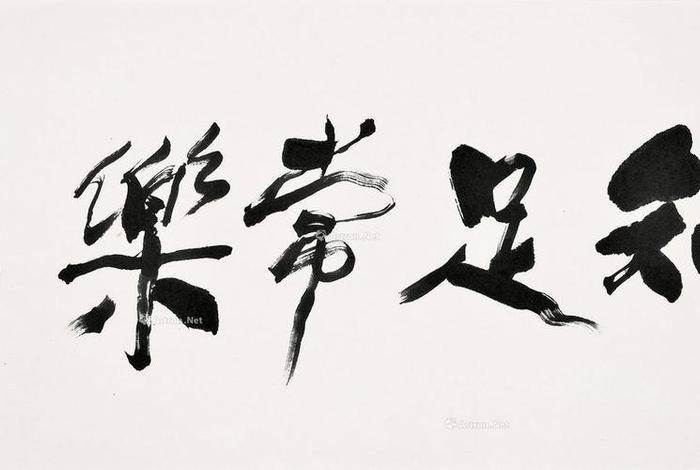 知足常樂
Artron.Net
Artron.Net
Artron.Net